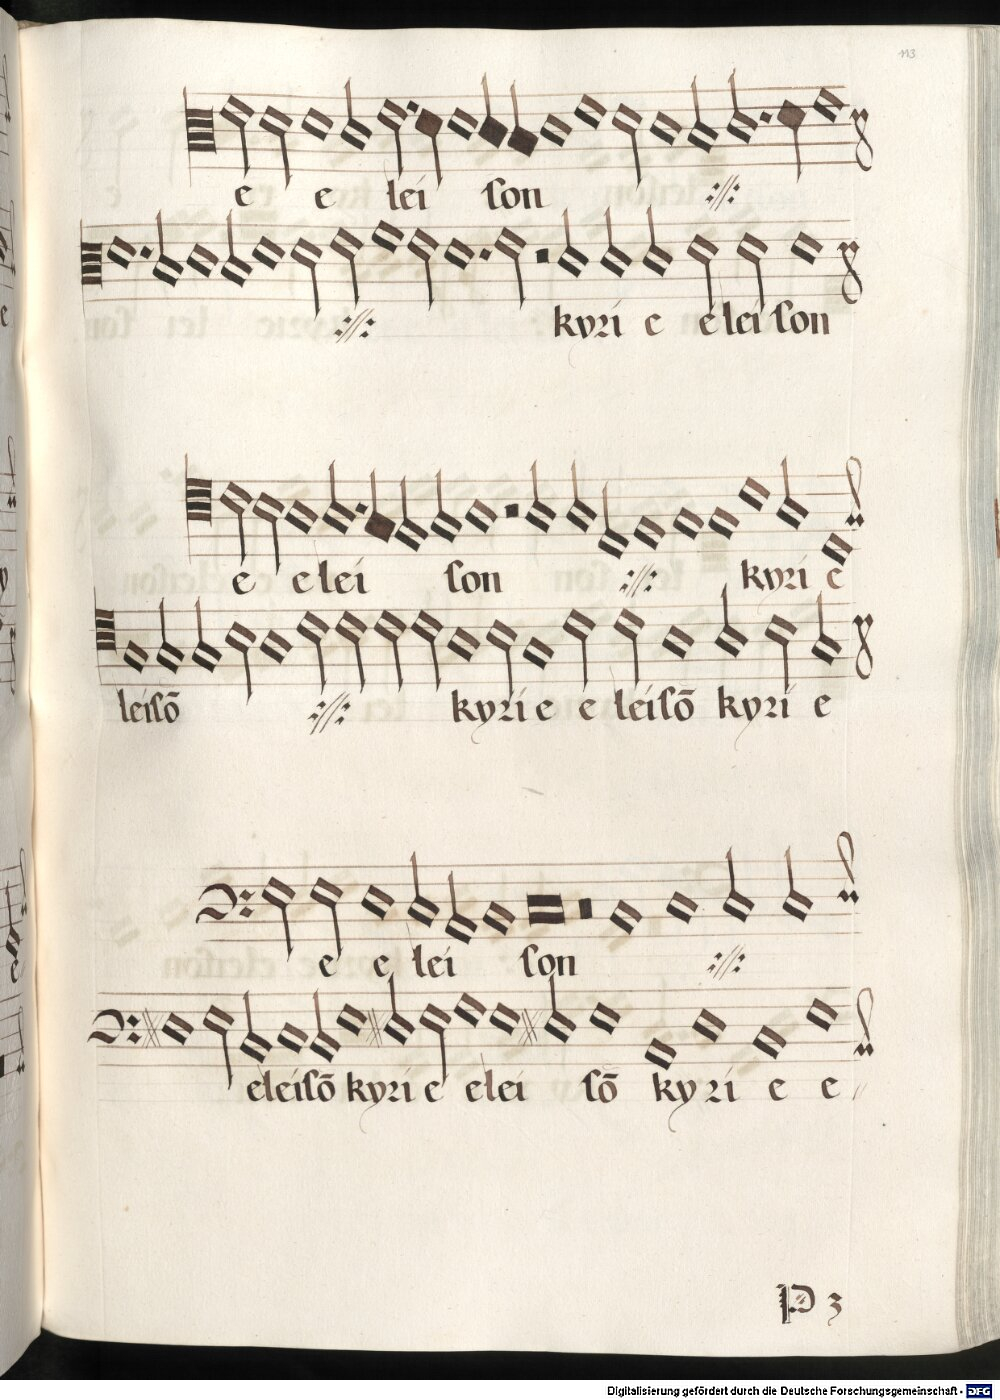 113
e e lei son
kyri e e lei son
e e lei son kyri e
leisō kyri e e leisō kyri e
e e lei son
eleisō kyri e elei sō kyri e e
P 3
Digitalisierung gefördert durch die Deutsche Forschungsgemeinschaft - DFG